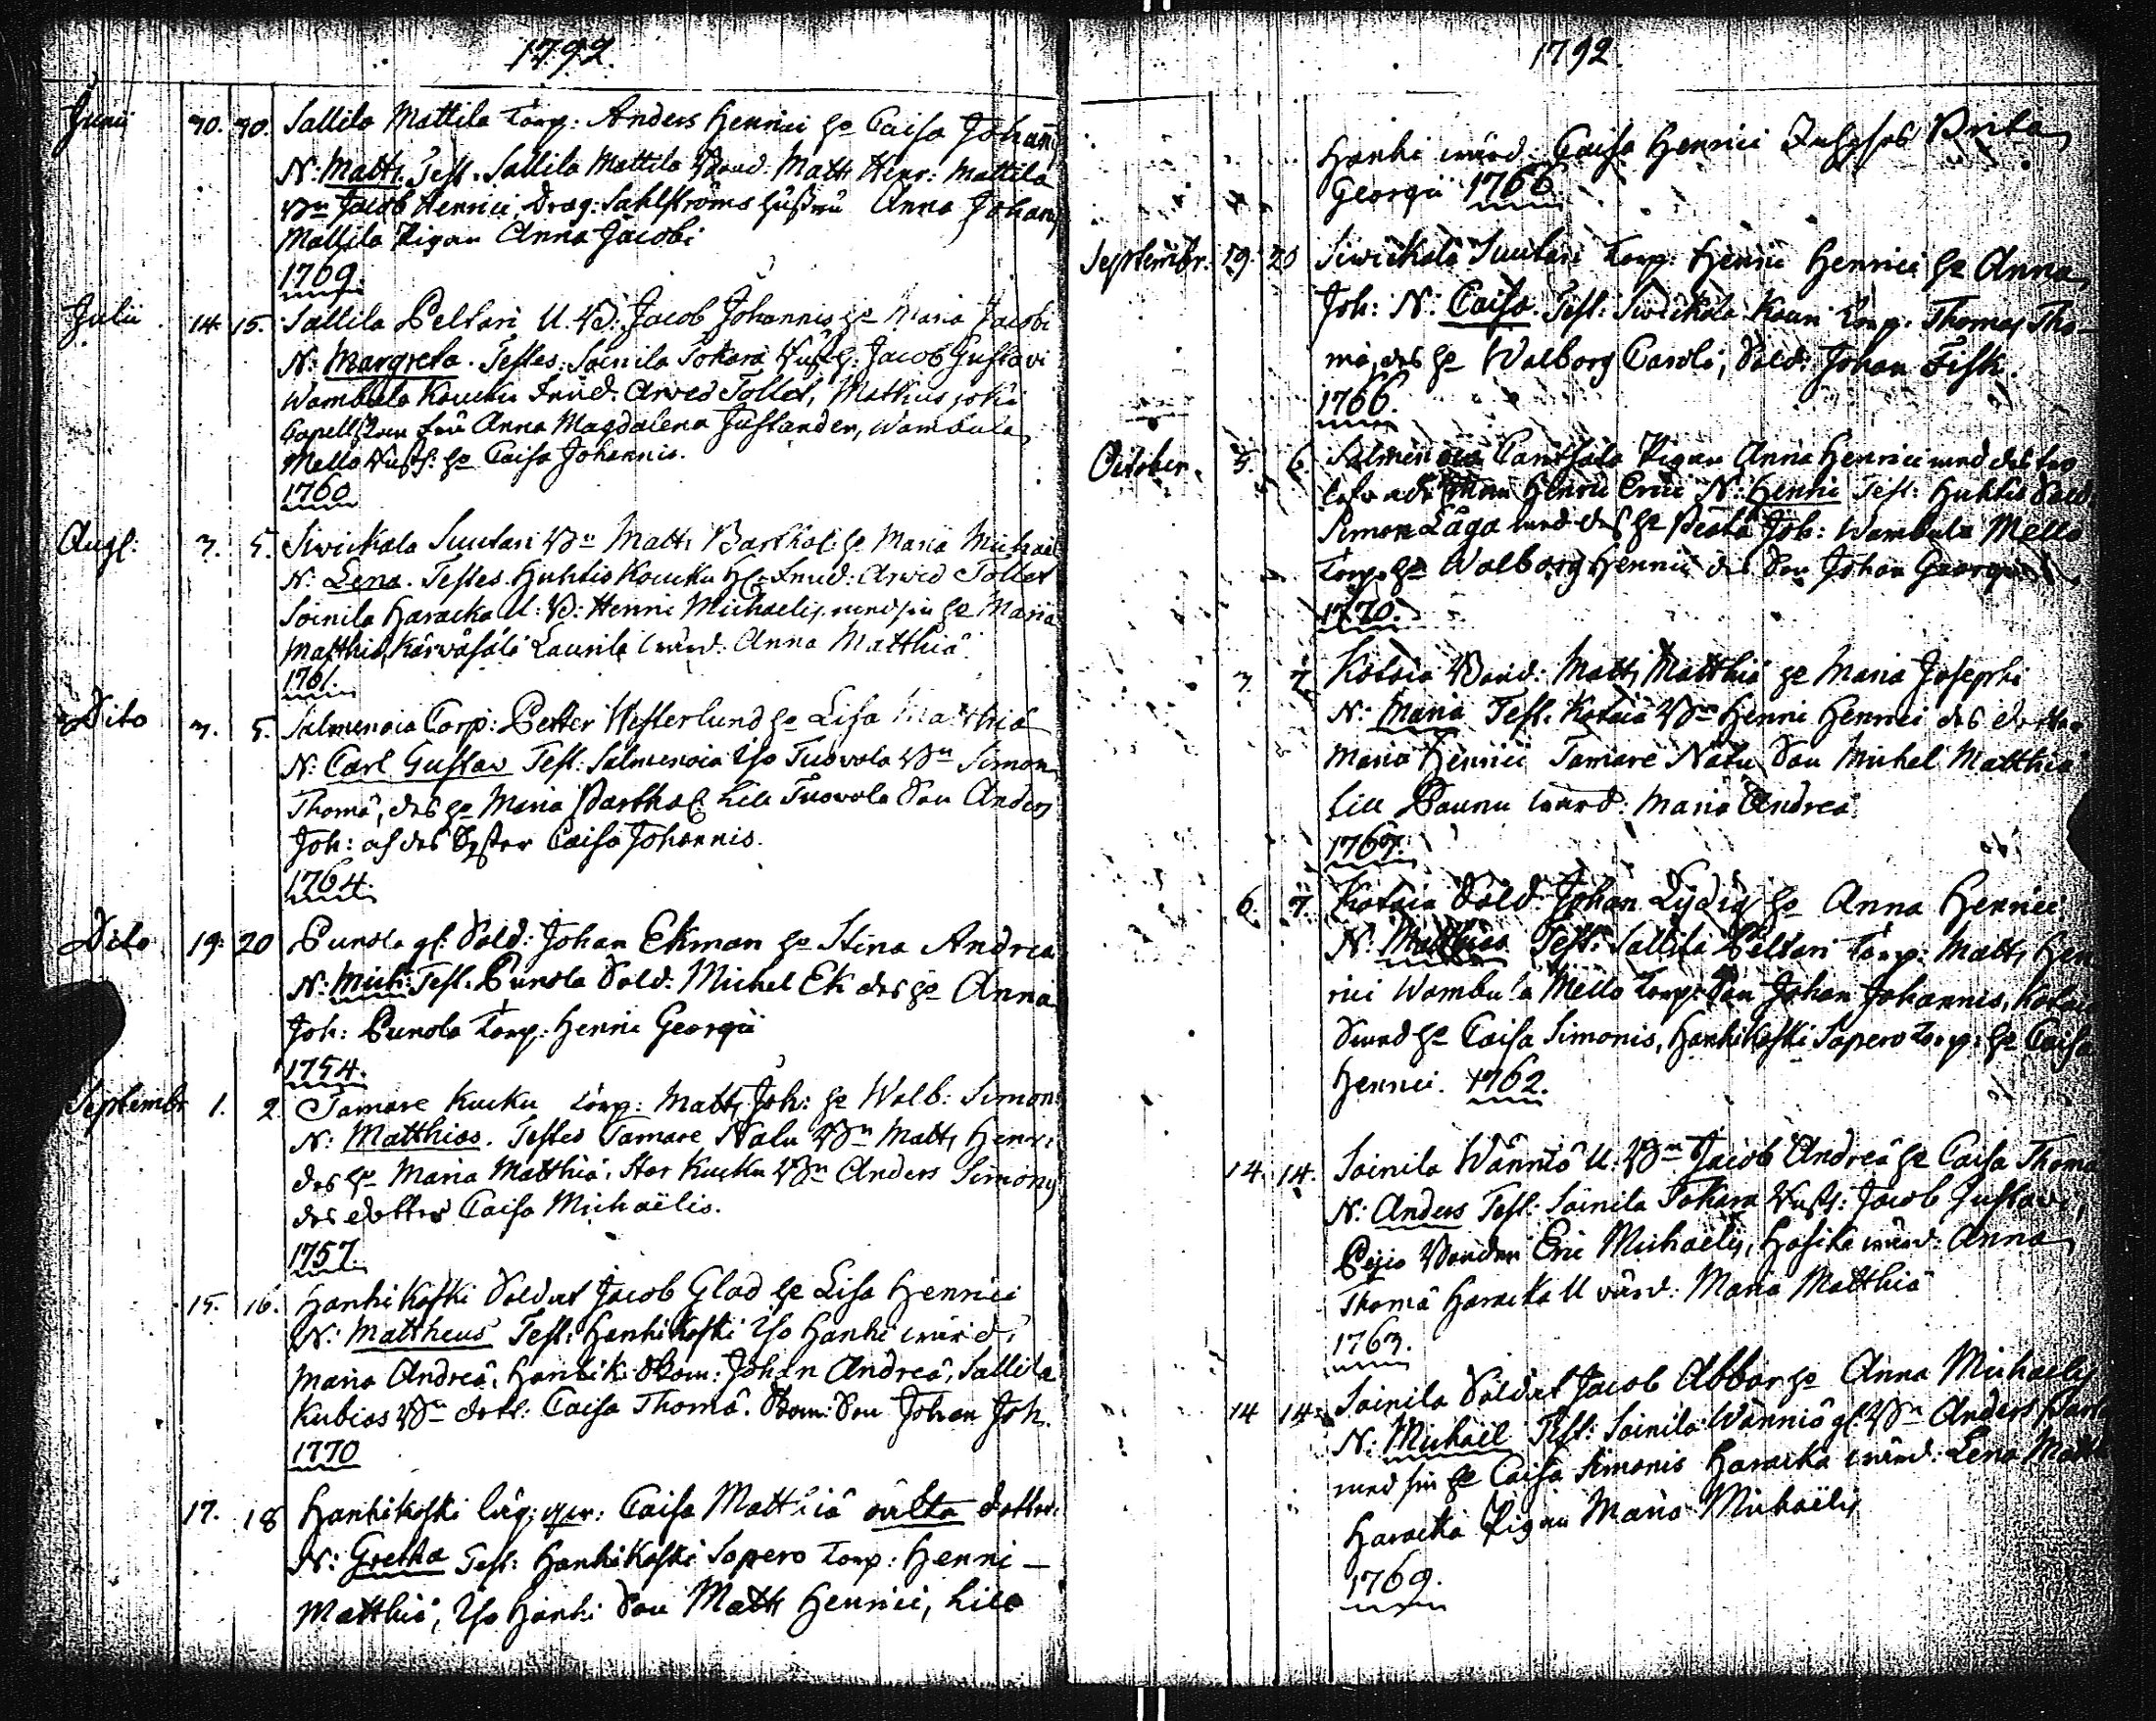 1792.
Junii 30. 30. Sallila Mattila Torp: Anders Henrici h:o Caisa Johann:
N: Matts. Test. Sallila Mattila Bond. Matts Henr: Mattila
B:n Jacob Henrici, Drag: Sahlströms hustru Anna Johann
Mattila Pigan Anna Jacobi
1769.
Julii 14. 15. Sallila Peltari U. B: Jacob Johannis h:o Maria Jacobi
N: Margreta. Testes: Soinila Tokara Rusth: Jacob Gustavi
Wambula Koucku Arved Tollet, Mathus joki
Capellskan fru Anna Magdalena Justander, Wambula
Mello Rusth: h:o Caisa Johannis.
1760
Aug: 3. 5. Siwickala Suutari B:n Matts Barthol: h:o Maria Michael
N: Lena. Testes. Huhtis Koucku Arved Tollet
Soinila Haracka U: B: Henric Michaelis med sin h:o Maria
Matthiæ, Kärväsälä Laurila wärd: Anna Matthiä
1761.
Dito 3. 5. Salmenoia Corp: Petter Westerlund h:o Lisa Matthiä
N: Carl Gustav Test: Salmenoia Iso Tuovola B:n Simon
Thomä, des h:o Maria Barthol: Lill Tuovola Son Anders
Joh: och des Syster Caisa Johannis.
1764.
Dito 19. 20 Punola gl: Sold: Johan Ekman h:o Stina Andreä
N: Mich: Test. Punola Sold: Michel Ek des h:o Anna
Joh: Punola Torp: Henric Georgii
1754.
Septembr 1. 2. Tamare Kucku Torp: Matts Joh: h:o Walb: Simon:
N: Matthias. Testes Tamare Nalu B:n Matts Henr:
des h:o Maria Matthiä. Stor Kucku B:n Anders Simonis
des dotter Caisa Michaëlis.
1757.
15. 16. Hanhikoski Soldat Jacob Glad h:o Lisa Henrici
N: Mattheus Test: Hanhikoski Iso Hanhi wärd:
Maria Andreä, Hanhik: Skom: Johan Andreä, Sallila
Kubias B:n dott: Caisa Thomä. Skom: Son Johan Joh.
1770
17. 18 Hanhikoski läg: qv: Caisa Matthiä oälta dotter:
N: Gretha Test: Hanhikoski Sopero Torp: Henric
Matthiä, Iso Hanhi Son Matts Henrici, Lill
1792.
Hanhi wärd: Caisa Henrici Inhyses Brita
Georgii 1766.
Septembr. 19. 20 Siwickala Suutari Torp: Henric Henrici h:o Anna
Joh: N: Caisa. Test: Siwickala Kauri Torp: Thomas Tho-
mä, des h:o Walborg Caroli, Sold: Johan Fisk.
1766.
October. 5. 6. Salmenoia Pigan Anna Henrici med des
Man Henric Erici N: Henric Test: Huhtis Sold
Simon Låga med des h:o Beata Joh: Wambula Mello
Torp: h:o Walborg Henrici des Son Johan Georgii
1770.
3. 7 Kotoia Bond: Matts Matthiä h:o Maria Josephi
N: Maria Test. Kotoia B:n Henric Henrici des dotter
Maria Henrici Tamare Nalu Son Michel Matthiä
Lill Paunu wärd: Maria Andreä.
1767.
6. 7. Kotoia Sold: Johan Lydig h:o Anna Henrici
N: Matthias Test: Sallila Peltari Torp: Matts Hen
rici Wambula Mello Torp: Son Johan Johannis, Kotoi
Sund h:o Caisa Simonis, Hanhikoski Sopero Torp: h:o Caisa
Henrici. 1762.
14. 14. Soinila Wänniö U: B:n Jacob Andreä h:o Caisa Thomä
N: Anders Test: Soinila Tokara Rusth: Jacob Gustavi,
Pejio Bonden Eric Michaelis, Hosika wärd: Anna
Thomä Haracka U wärd: Maria Matthiä
1763.
14 14. Soinila Soldat Jacob Abbor h:o Anna Michaelis
N: Michaël Test: Soinila Wänniö gl: B:n Anders
med sin h:o Caisa Simonis Haracka wärd: Lena Matt
Haracka Pigan Maria Michaëlis
1769.